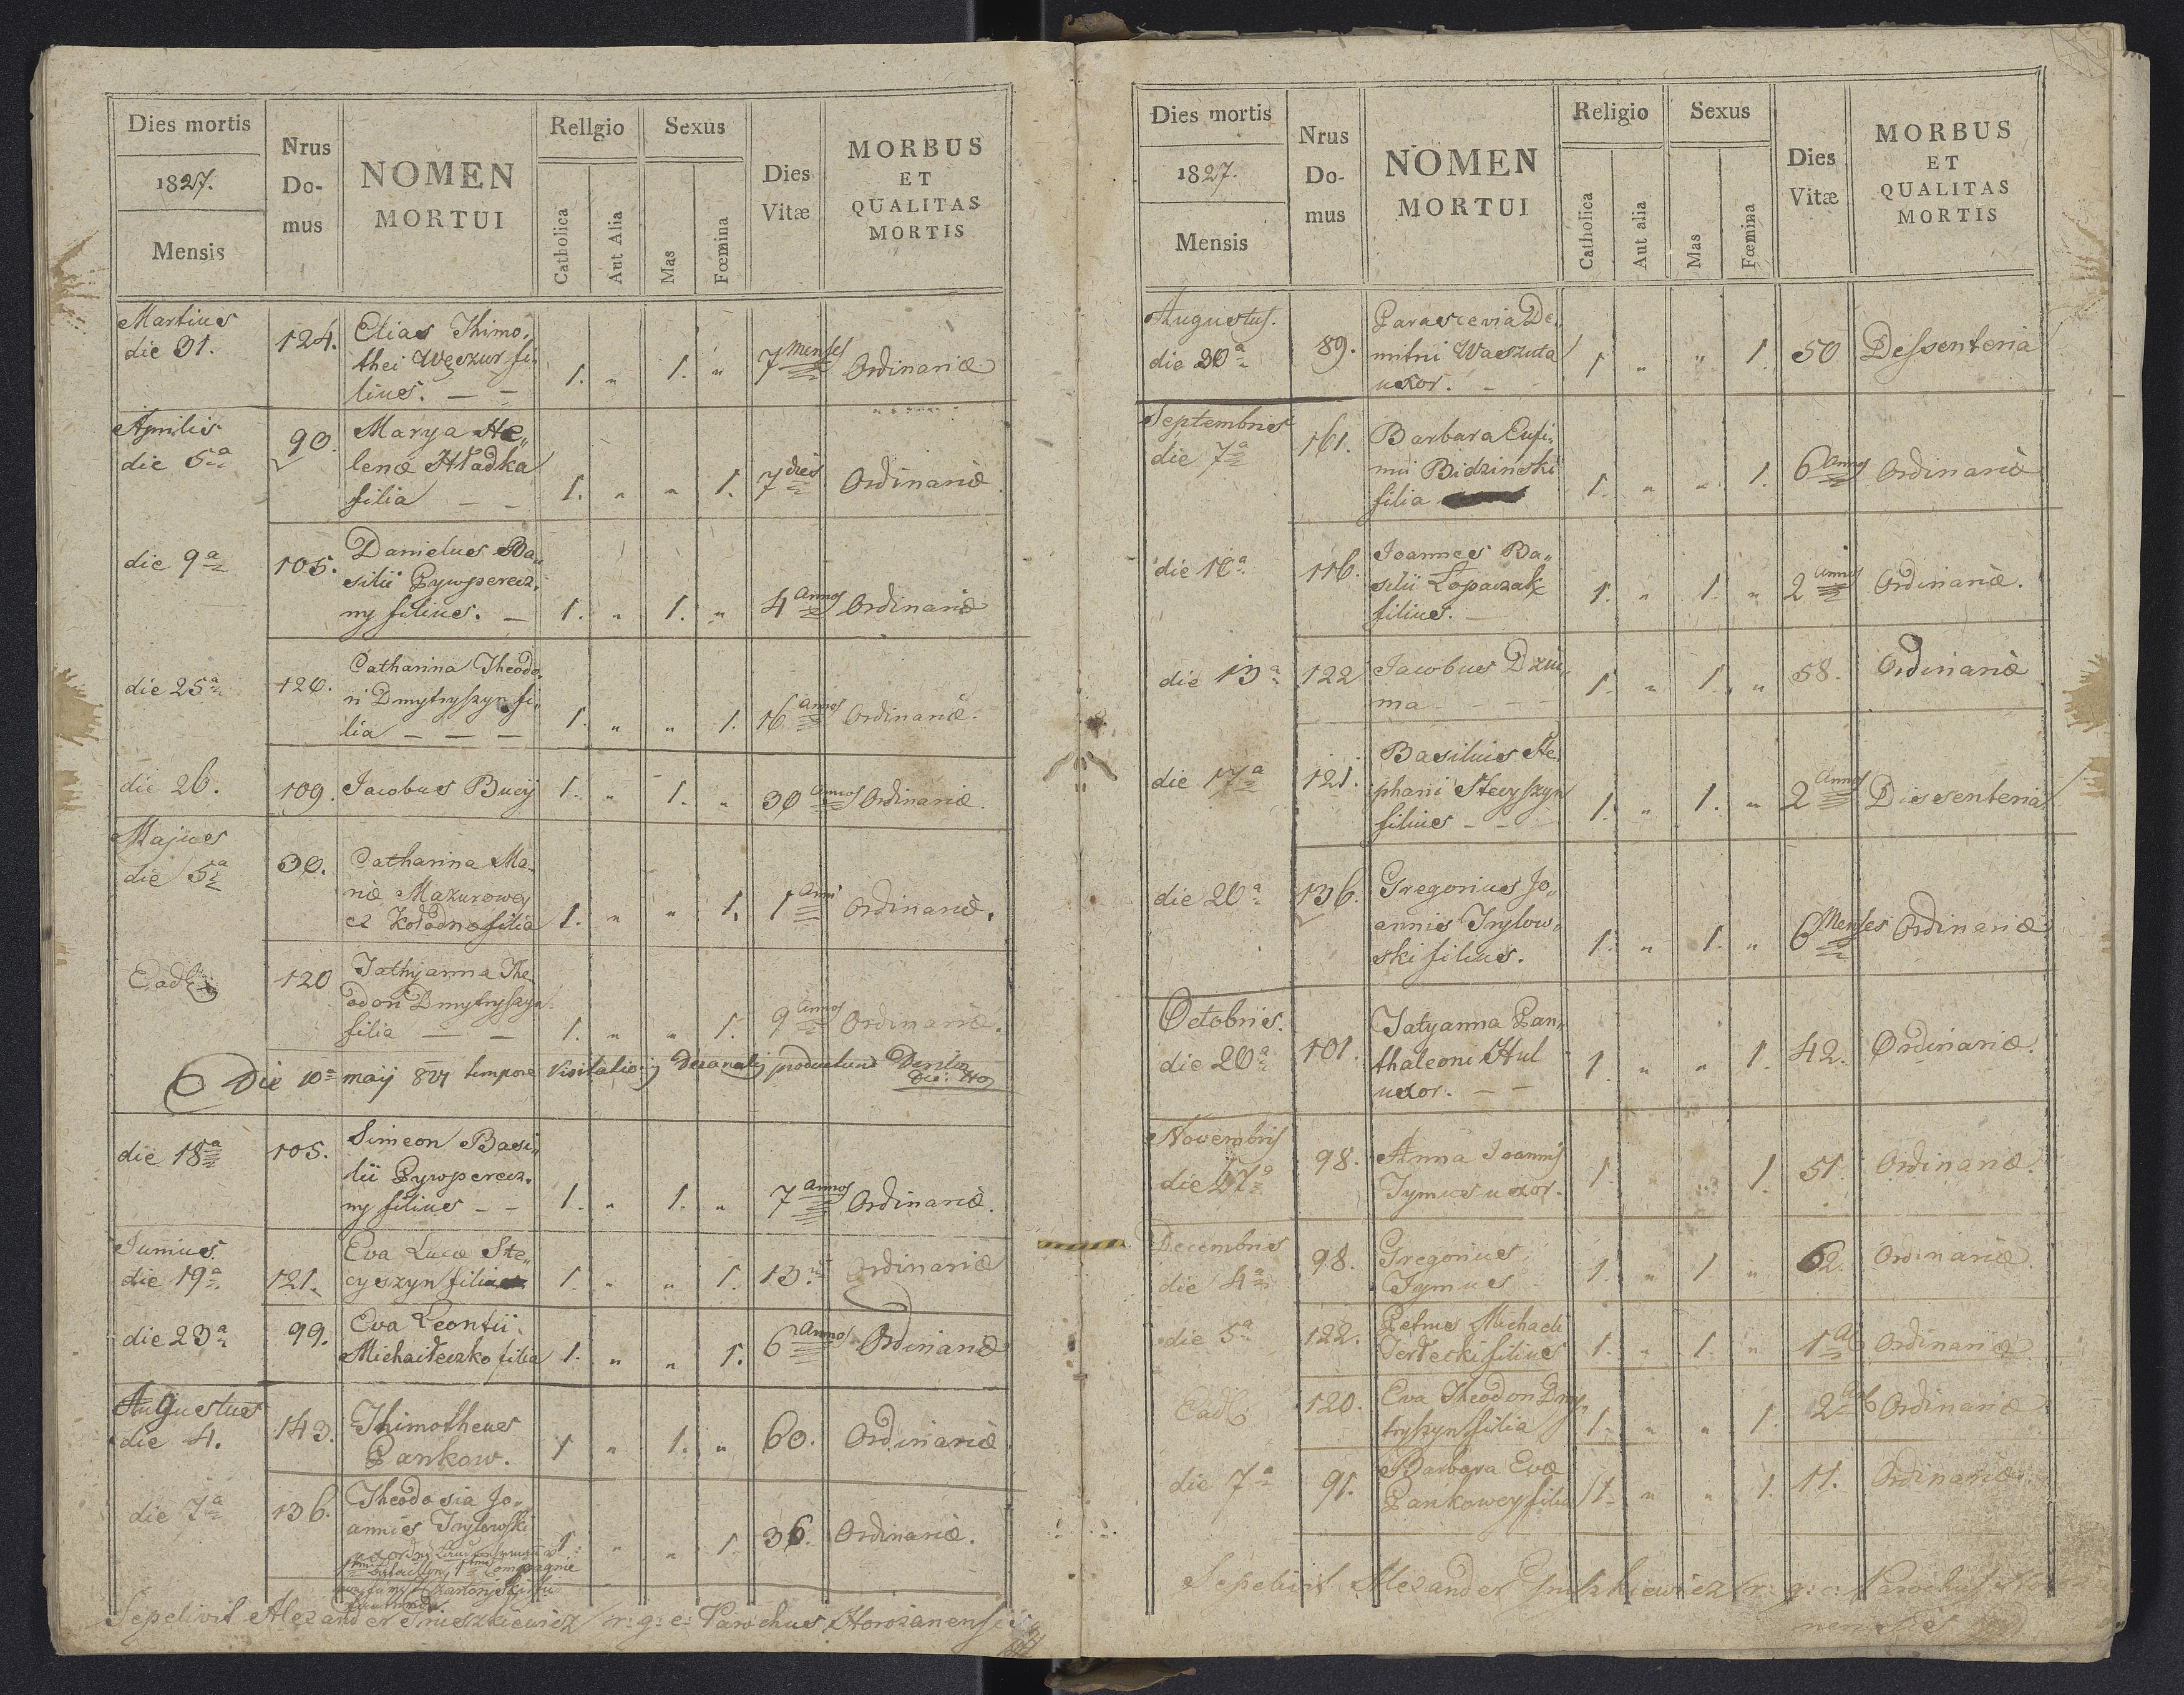 Dies mortis
1827.
Mensis
Nrus
Do-
mus
NOMEN
MORTUI
Rellgio
Catholica
Aut Alia
Sexus
Mas
Fœmina
Dies
Vitæ
MORBUS
ET
QUALITAS
MORTIS
Martius
die 31. 124. Elias Thimo„
thei Węszur fi„
lius. — — 1. „ 1. „ 7 Menses Ordinariæ
Aprilis
die 5a 90. Marya He„
lenæ Hładka
filia — — 1. „ „ 1. 7 dies Ordinariæ
die 9a 105. Danielus Ba„
silii Pywperecz„
ny filius. — 1. „ 1. „ 4 Annos Ordinariæ
die 25a 120. Catharina Theodo„
ri Dmytryszyn fi„
lia — — — 1. „ „ 1. 16 Annos Ordinariæ.
die 26. 109. Jacobus Bucij 1. „ 1. „ 30 Annos Ordinariæ.
Majus
die 5a 30. Catharina Ma„
riæ Mazurowey
filia 1. „ „ 1. 1 Anni Ordinariæ.
Ead. 120 Tathjanna The
odori Dmytryszyn
filia — — 1. „ „ 1. 9 Annos Ordinariæ.
Die 10a maij 827 tempore Visitationis Decanalis productum
die 18a 105. Simeon Basi„
lii Pywperecz„
ny filius — — 1. „ 1. „ 7 Annos Ordinariæ.
Junius
die 19a 121. Eva Lucæ Ste„
cyszyn filia 1. „ „ 1. 13. Ordinariæ
die 23a 99. Eva Leontii
Michaiłeczko filia 1. „ „ 1. 6 Annos Ordinariæ
Augustus
die 4. 143. Thimotheus
Pankow. 1 „ 1. „ 60. Ordinariæ
die 7a 136. Theodosia Jo„
annis Trylowski
1 „ „ 1 36. Ordinariæ.
Sepelivit Alexander Hruszkiewicz r: g: c: Parochus Horożanensis
Dies mortis
1827.
Mensis
Nrus
Do-
mus
NOMEN
MORTUI
Religio
Catholica
Aut alia
Sexus
Mas
Fœmina
Dies
Vitæ
MORBUS
ET
QUALITAS
MORTIS
Augustus.
die 30a 89. Parascevia De„
mitrii Waszuta
uxor. — 1 „ „ 1. 50 Dessenteria
Septembris
die 7a 161. Barbara Eufi„
mii Bidzinski
filia 1. „ „ 1. 6 Annos Ordinariæ
die 10a 116. Joannes Ba„
silii Łopaczak
filius. — 1. „ 1. „ 2 Annos Ordinariæ.
die 13a 122 Jacobus Dziu„
ma 1. „ 1. „ 58. Ordinariæ
die 17a 121. Basilius Ste„
phani Stecyszyn
filius — — 1. „ 1. „ 2 Annos Dissenteria
die 20a 136. Gregorius Jo„
annis Trylow„
ski filius. 1. „ 1. „ 6 Menses Ordinariæ
Octobris.
die 20a 101. Tatyanna Pan„
thaleoni Hul
uxor. — — 1. „ „ 1. 42. Ordinariæ.
Novembris
die 27a 98. Anna Joannis
Tymus uxor. 1. „ 1. 51. Ordinariæ.
Decembris
die 4a 98. Gregorius
Tymus 1. „ 1 „ 62. Ordinariæ.
die 5a 122. Petrus Michaeli
Terlecki filius 1. „ 1. „ 1 Ordinariæ
Ead. 120. Eva Theodori Dmy„
tryszyn filia 1. „ „ 1. 2 Ordinariæ
die 7a 91. Barbara Evæ
Pankowey filia 1. „ „ 1. 11. Ordinariæ.
Sepelivit Alexander Hruszkiewicz r: g: c: Parochus Horoża
nensis